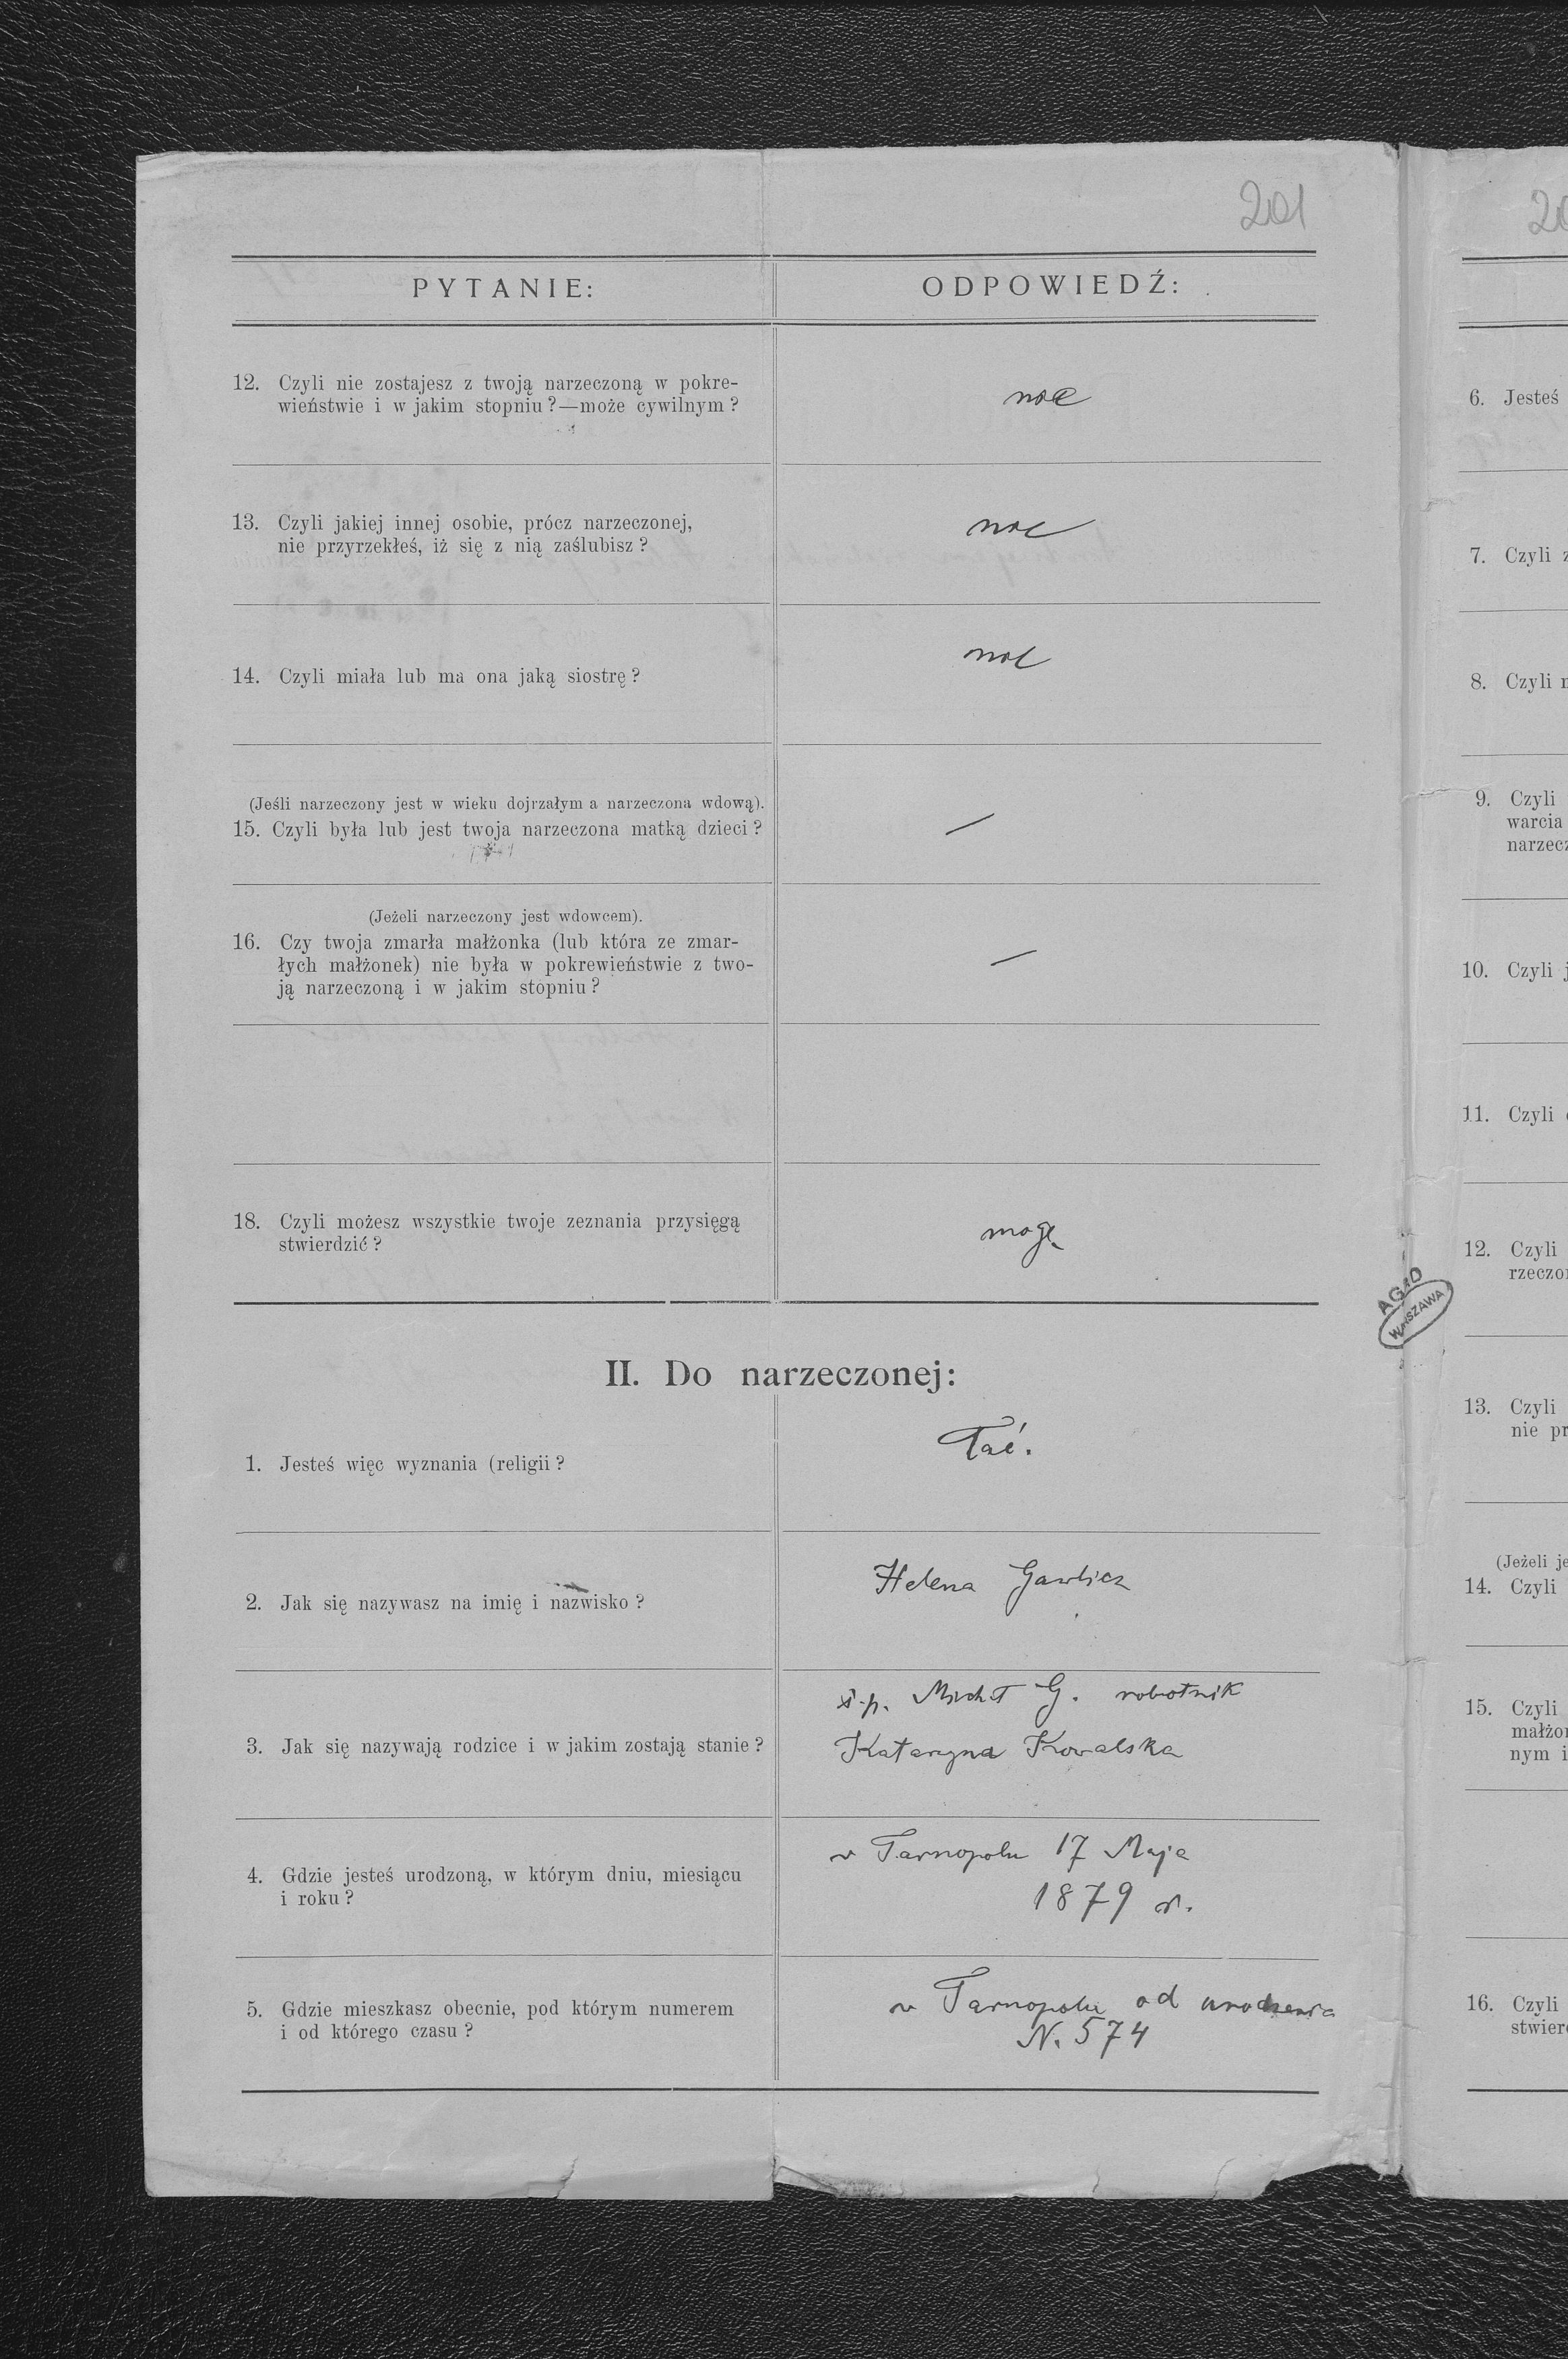 201
PYTANIE:
ODPOWIEDŹ:
12. Czyli nie zostajesz z twoją narzeczoną w pokre-
wieństwie i w jakim stopniu?—może cywilnym?
nie
13. Czyli jakiej innej osobie, prócz narzeczonej,
nie przyrzekłeś, iż się z nią zaślubisz?
nie
14. Czyli miała lub ma ona jaką siostrę?
nie
(Jeśli narzeczony jest w wieku dojrzałym a narzeczona wdową).
15. Czyli była lub jest twoja narzeczona matką dzieci?
—
(Jeżeli narzeczony jest wdowcem).
16. Czy twoja zmarła małżonka (lub która ze zmar-
łych małżonek) nie była w pokrewieństwie z two-
ją narzeczoną i w jakim stopniu?
—
18. Czyli możesz wszystkie twoje zeznania przysięgą
stwierdzić?
mogę
II. Do narzeczonej:
1. Jesteś więc wyznania (religii?
łać.
2. Jak się nazywasz na imię i nazwisko?
Helena Gawlicz
3. Jak się nazywają rodzice i w jakim zostają stanie?
ś.p. Michał G. robotnik
Katarzyna Kowalska
4. Gdzie jesteś urodzoną, w którym dniu, miesiącu
i roku?
w Tarnopolu 17 Maja
1879 r.
5. Gdzie mieszkasz obecnie, pod którym numerem
i od którego czasu?
w Tarnopolu od urodzenia
N. 574
AGAD
WARSZAWA
20
6. Jesteś
7. Czyli z
8. Czyli
9. Czyli
warcia
narzecz
10. Czyli j
11. Czyli
12. Czyli
rzeczo
13. Czyli
nie pr
(Jeżeli je
14. Czyli
15. Czyli
małżo
nym i
16. Czyli
stwier